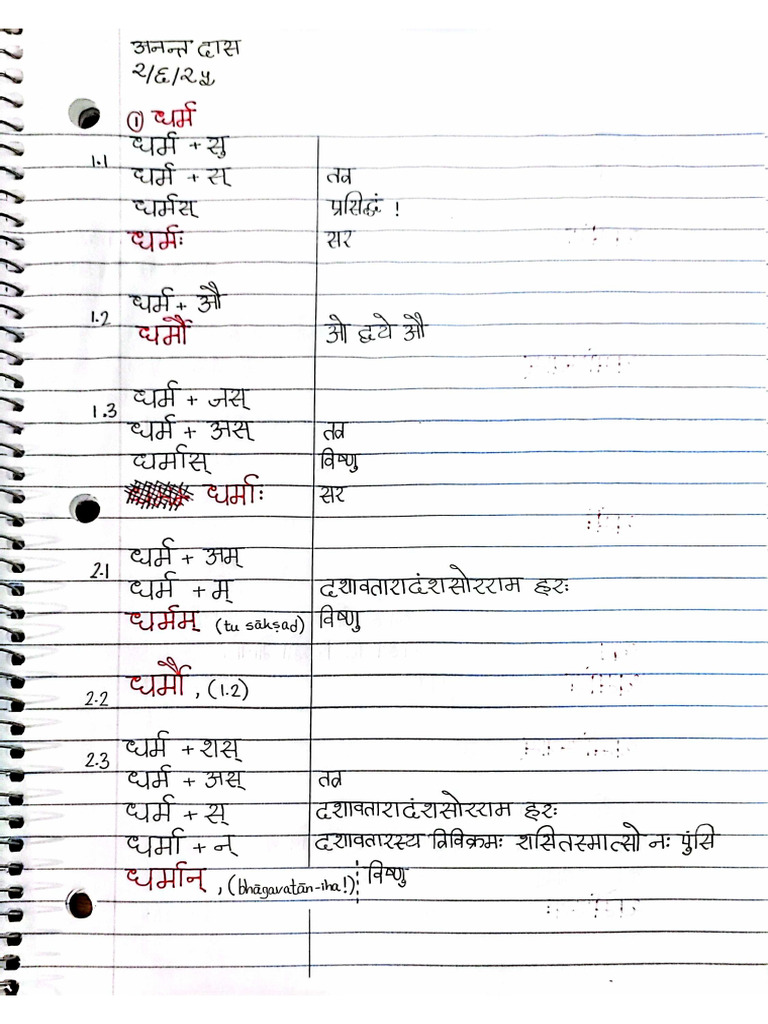 अनन्त दास
२/६/२५
① धर्म
1.1 धर्म + सु
धर्म + स् तत्र
धर्मस् प्रसिद्धं !
धर्मः सर
1.2 धर्म + औ
धर्मौ ओ द्वये औ
1.3 धर्म + जस्
धर्म + अस् तत्र
धर्मास् विष्णु
धर्माः सर
2.1 धर्म + अम्
धर्म + म् दशावतारादंशसोरराम हरः
धर्मम् (tu sākṣad) विष्णु
2.2 धर्मौ , (1.2)
2.3 धर्म + शस्
धर्म + अस् तत्र
धर्म + स् दशावतारादंशसोरराम हरः
धर्मा + न् दशावतारस्य त्रिविक्रमः शसितस्मात्सो नः पुंसि
धर्मान् , (bhāgavatān-iha!) विष्णु